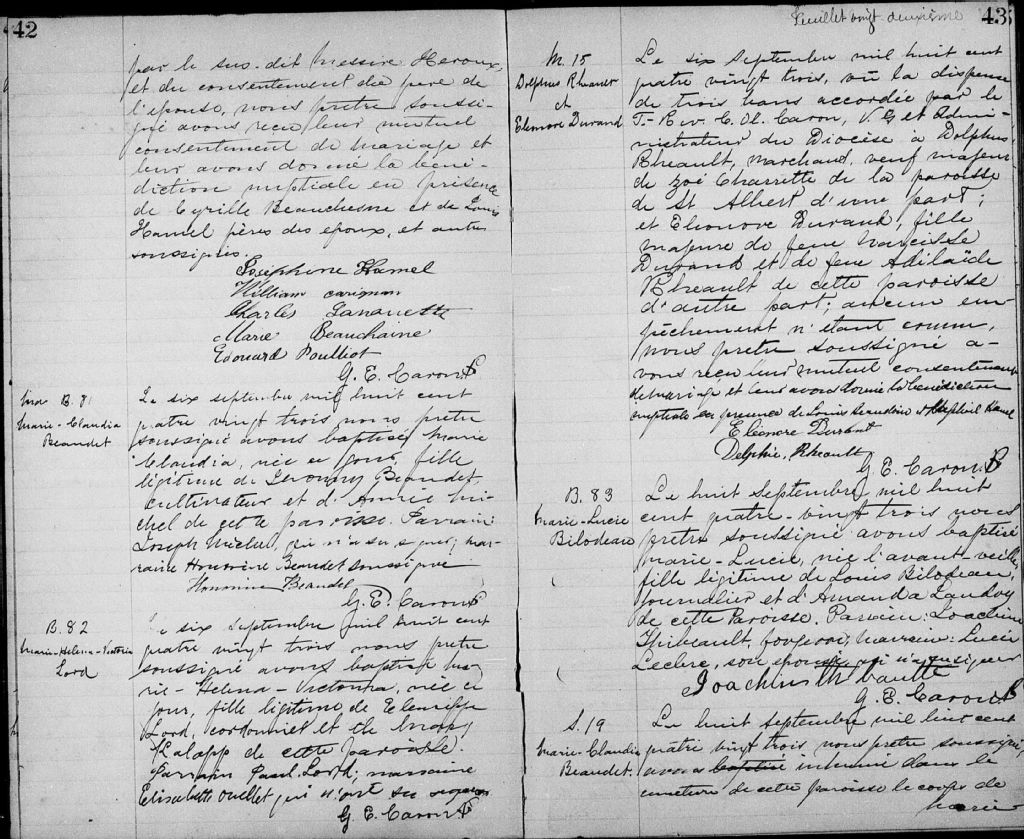 42
par le sus-dit Messire Heroux,
et du consentement du pere de
l'epouse, nous prêtre soussi-
gné avons reçu leur mutuel
consentement de mariage et
leur avons donné la béné-
diction nuptiale en présence
de Cyrille Beauchesne et de Louis
Hamel pères des epoux, et autres
soussignés.
Joséphine Hamel
William Carignan
Charles
Marie Beauchaine
Edouard Pouliot
G. E. Caron P
B. 81
Marie-Claudia
Beaudet
Le six septembre mil huit cent
quatre vingt trois nous prêtre
soussigné avons baptisé Marie
Claudia, née ce jour, fille
légitime de Beaudet,
cultivateur et d'
chel de cette paroisse. Parrain:
Joseph Michel, qui n'a su signer; mar-
raine Honorine Beaudet soussignée
Honorine Beaudet
G. E. Caron P
B. 82
Marie-Helena-Victoria
Lord
Le six septembre mil huit cent
quatre vingt trois nous pretre
soussigné avons baptisé Ma-
rie-Helena-Victoria, née ce
jour, fille légitime de
Lord, cordonnier et de
de cette paroisse.
Parrain Paul Lord; marraine
Elisabeth Ouellet qui n'ont su signer
G. E. Caron P
Feuillet vingt deuxième
43
M. 15
Dolphus Rheault
et
Eleonore Durand
Le six Septembre mil huit cent
quatre vingt trois, vû la dispense
de trois bans accordée par le
T. Rev. C. O. Caron, V. G et Admi-
nistrateur du Diocèse à Dolphus
Rheault, marchand, veuf majeur
de Zoé Charrette de la paroisse
de St Albert d'une part;
et Eleonore Durand, fille
majeure de feue Narcisse
Durand et de feue Adélaïde
Rheault de cette paroisse
d'autre part; aucun em-
pêchement n'étant connu,
nous pretre soussigné a-
vons reçu leur mutuel consentement
de mariage et leur avons donné la bénédiction
nuptiale en presence de Louis et Hamel
Eléonore Durant
Delphie, Rheault
G. E. Caron P
B. 83
Marie-Lucie
Bilodeau
Le huit Septembre mil huit
cent quatre-vingt trois nous
pretre soussigné avons baptisé
Marie-Lucie, née l'avant-veille,
fille légitime de Louis Bilodeau,
journalier et d'Amanda Landry
de cette Paroisse. Parrain: Joachim
Thibeault, forgeron, Marraine: Lucie
Leclerc, son epouse qui n'a su signer
Joachim Thibault
G. E. Caron P
S. 19
Marie-Claudia
Beaudet.
Le huit septembre mil huit cent
quatre vingt trois nous pretre soussigné,
avons baptisé inhumé dans le
cimetière de cette paroisse le corps de
Marie-